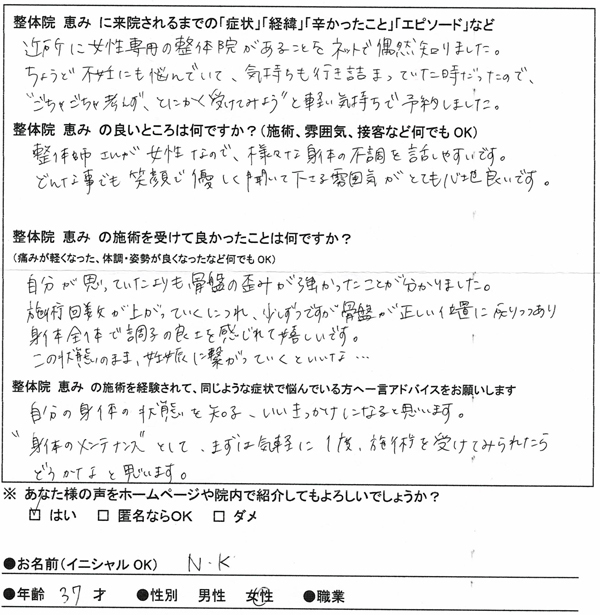 整体院 恵み に来院されるまでの「症状」「経緯」「辛かったこと」「エピソード」など
近所に女性専用の整体院があることをネットで偶然知りました。
ちょうど不妊にも悩んでいて、気持ちも行き詰まっていた時だったので、
"ごちゃごちゃ考えず、とにかく受けてみよう"と軽い気持ちで予約しました。
整体院 恵み の良いところは何ですか？(施術、雰囲気、接客など何でもOK)
整体師さんが女性なので、様々な身体の不調を話しやすいです。
どんな事でも笑顔で優しく聞いて下さる雰囲気がとても心地良いです。
整体院 恵み の施術を受けて良かったことは何ですか？
(痛みが軽くなった、体調・姿勢が良くなったなど何でもOK)
自分が思っていたよりも骨盤の歪みが強かったことが分かりました。
施術回数が上がっていくにつれ、少しずつですが骨盤が正しい位置に戻りつつあり
身体全体で調子の良さを感じれて嬉しいです。
この状態のまま、妊娠に繋がっていくといいな…
整体院 恵み の施術を経験されて、同じような症状で悩んでいる方へ一言アドバイスをお願いします
自分の身体の状態を知る、いいきっかけになると思います。
"身体のメンテナンス"として、まずは気軽に1度、施術を受けてみられたら
どうかなと思います。
※ あなた様の声をホームページや院内で紹介してもよろしいでしょうか？
☑ はい □ 匿名ならOK □ ダメ
●お名前(イニシャルOK) N・K
●年齢 37 才 ●性別 男性 女性 ●職業